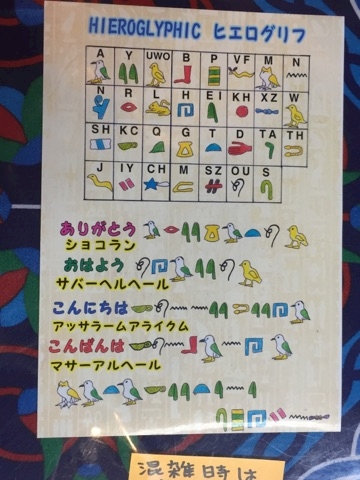 HIEROGLYPHIC ヒエログリフ
A Y UWO B P VF M N
N R L H EI KH XZ W
SH KC Q G T D TA TH
J IY CH M SZ OU S
ありがとう
ショコラン
おはよう
サバーヘルヘール
こんにちは
アッサラームアライクム
こんばんは
マサーアルヘール
混雑時は